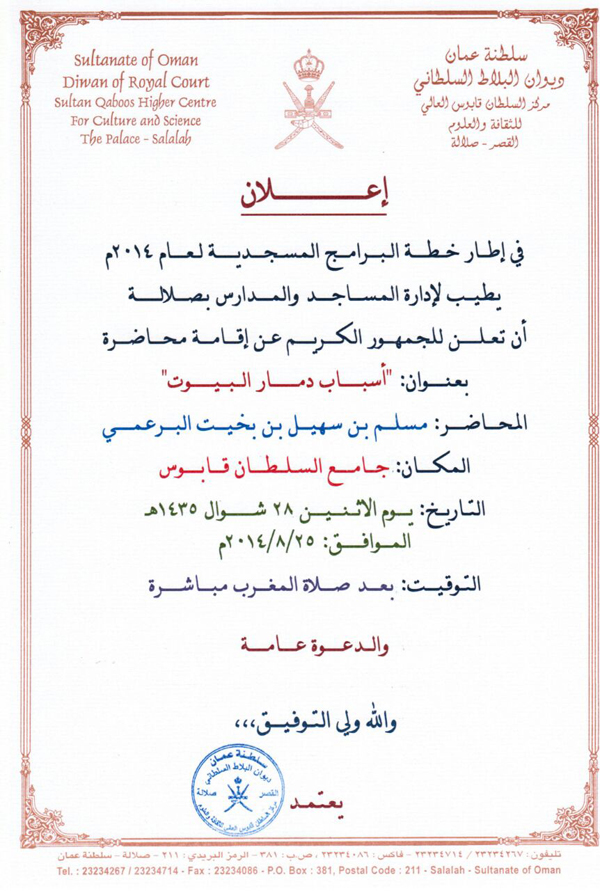 Sultanate of Oman
Diwan of Royal Court
Sultan Qaboos Higher Centre
For Culture and Science
The Palace - Salalah
سلطنة عمان
ديوان البلاط السلطاني
مركز السلطان قابوس العالي
للثقافة والعلوم
القصر - صلالة
إعـــلان
في إطار خطة البرامج المسجدية لعام ٢٠١٤م
يطيب لإدارة المساجد والمدارس بصلالة
أن تعلن للجمهور الكريم عن إقامة محاضرة
بعنوان: "أسباب دمار البيوت"
المحاضر: مسلم بن سهيل بن بخيت البرعمي
المكان: جامع السلطان قابوس
التاريخ: يوم الاثنين ٢٨ شوال ١٤٣٥هـ
الموافق: ٢٠١٤/٨/٢٥م
التوقيت: بعد صلاة المغرب مباشرة
والدعوة عامة
والله ولي التوفيق،،،
يعتمد
سلطنة عمان
ديوان البلاط السلطاني
القصر صلالة
تليفون : ٢٣٢٣٤٢٦٧ / ٢٣٢٣٤٧١٤ - فاكس : ٢٣٢٣٤٠٨٦ ، ص.ب : ٣٨١ - الرمز البريدي : ٢١١ - صلالة - سلطنة عمان
Tel. : 23234267 / 23234714 - Fax : 23234086 - P.O. Box : 381, Postal Code : 211 - Salalah - Sultanate of Oman